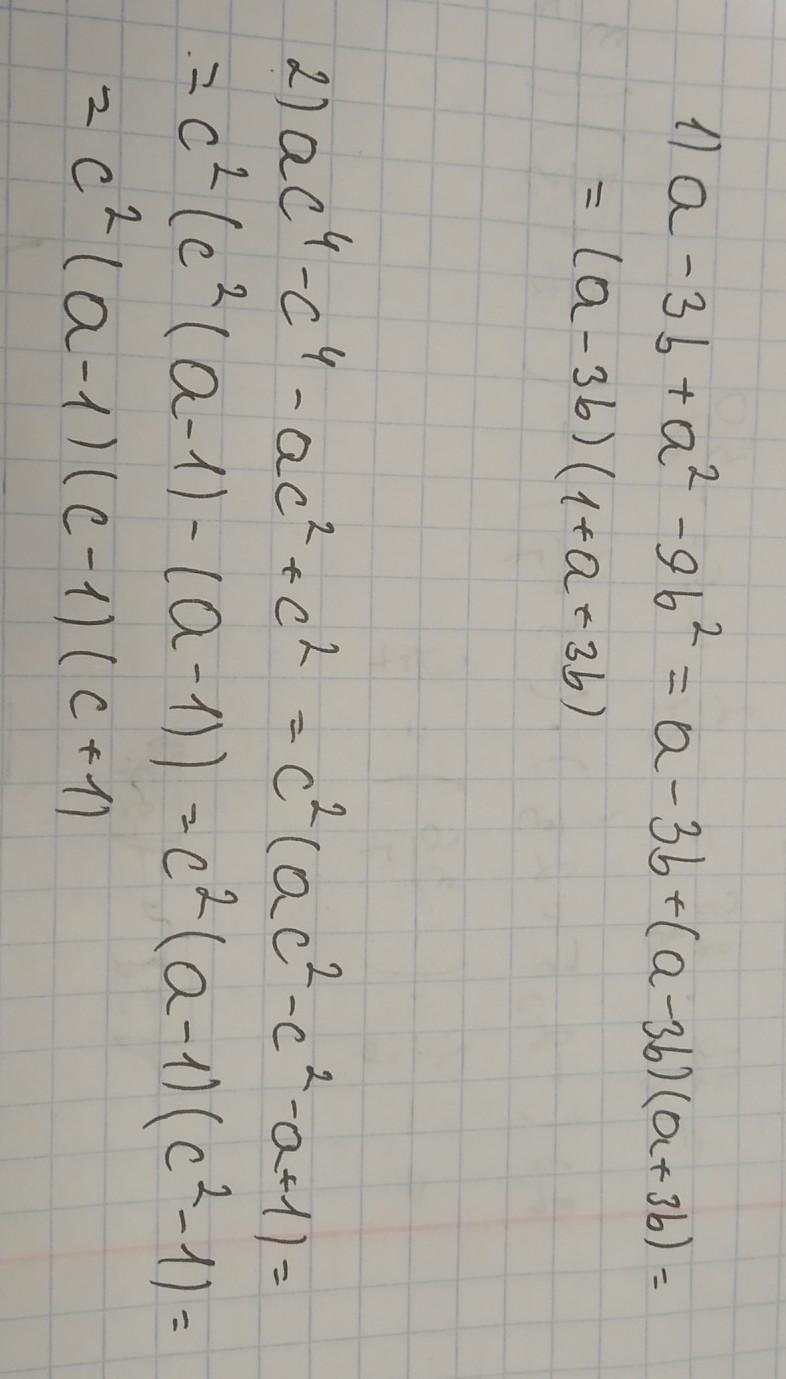 1) a - 3b + a² - 9b² = a - 3b + (a - 3b)(a + 3b) =
= (a - 3b)(1 + a + 3b)
2) ac⁴ - c⁴ - ac² + c² = c²(ac² - c² - a + 1) =
= c²(c²(a - 1) - (a - 1)) = c²(a - 1)(c² - 1) =
= c²(a - 1)(c - 1)(c + 1)